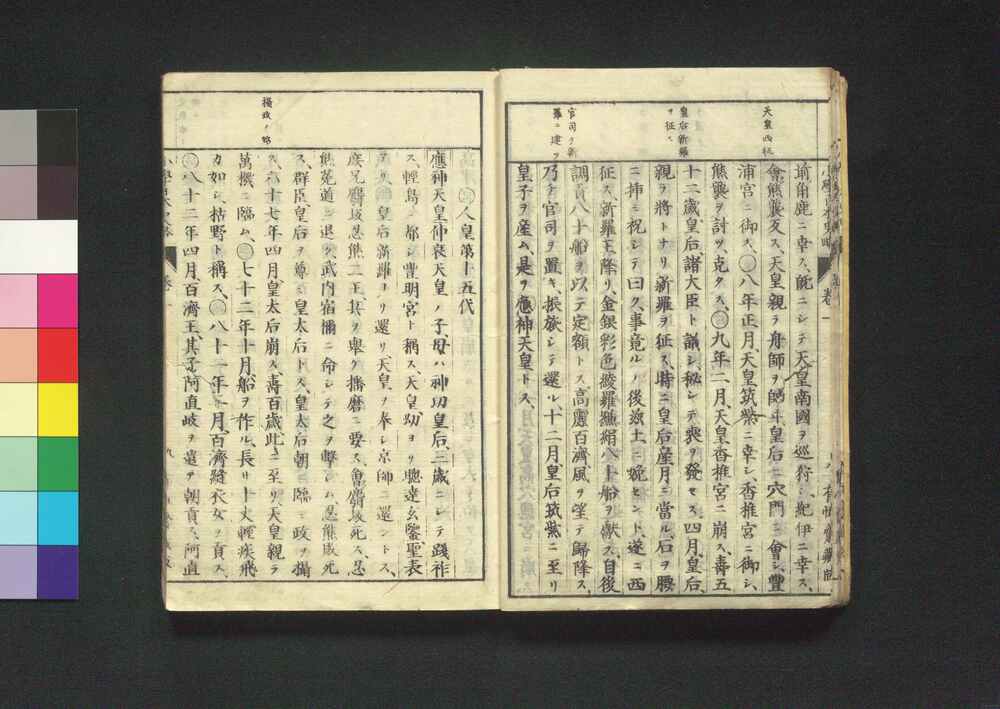 天皇西征
皇后新羅
ヲ征ス
官司ヲ新
羅ニ建ツ
喩角鹿ニ幸ス、既ニシテ天皇南國ヲ巡狩シ紀伊ニ幸ス、
會熊襲反ス、天皇親ラ舟師ヲ師ヰ皇后ニ穴門ニ會シ豐
浦宮ニ御ス、〇八年正月、天皇筑紫ニ幸シ香推宮ニ御シ、
熊襲ヲ討ツ克タス、〇九年二月、天皇香推宮ニ崩ス、壽五
十二歲、皇后、諸大臣ト議シ秘シテ喪ヲ發セス、四月、皇后、
親ラ將トナリ新羅ヲ征ス、時ニ皇后産月ニ當ル、石ヲ腰
ニ挿ミ祝シテ曰ク、事竟ルノ後茲土ニ娩セント、遂ニ西
征ス、新羅王降リ、金銀彩色綾羅縑絹八十船ヲ獻ス、自後
調貢八十船ヲ以テ定額トス、高麗百濟風ヲ望テ歸降ス、
乃チ官司ヲ置キ、振旅シテ還ル、十二月、皇后筑紫ニ至リ
皇子ヲ産ム、是ヲ應神天皇トス、
卷一
人皇第十五代
應神天皇、仲哀天皇ノ子、母ハ神功皇后、三歲ニシテ踐祚
ス、輕島ニ都シ豐明宮ト稱ス、天皇、幼ヨリ聰達玄鑒、聖表
アリ、皇后新羅ヨリ還リ、天皇ヲ奉シ京師ニ還ントス、
庶兄麛坂忍熊二王、兵ヲ舉ケ播磨ニ要ス、會麛坂死ス、忍
熊菟道ニ退ク、武内宿禰ニ命シテ之ヲ擊シム、忍熊敗死
ス、群臣、皇后ヲ尊テ皇太后トス、皇太后朝ニ臨ミ政ヲ攝
ス、六十七年四月、皇太后崩ス、壽百歲、此ニ至リ、天皇親ラ
萬機ニ臨ム、〇七十二年十月、船ヲ作ル、長サ十丈、輕疾飛
カ如シ、枯野ト稱ス、〇八十一年二月、百濟縫衣女ヲ貢ス、
〇八十二年四月、百濟王、其子阿直岐ヲ遣テ朝貢ス、阿直